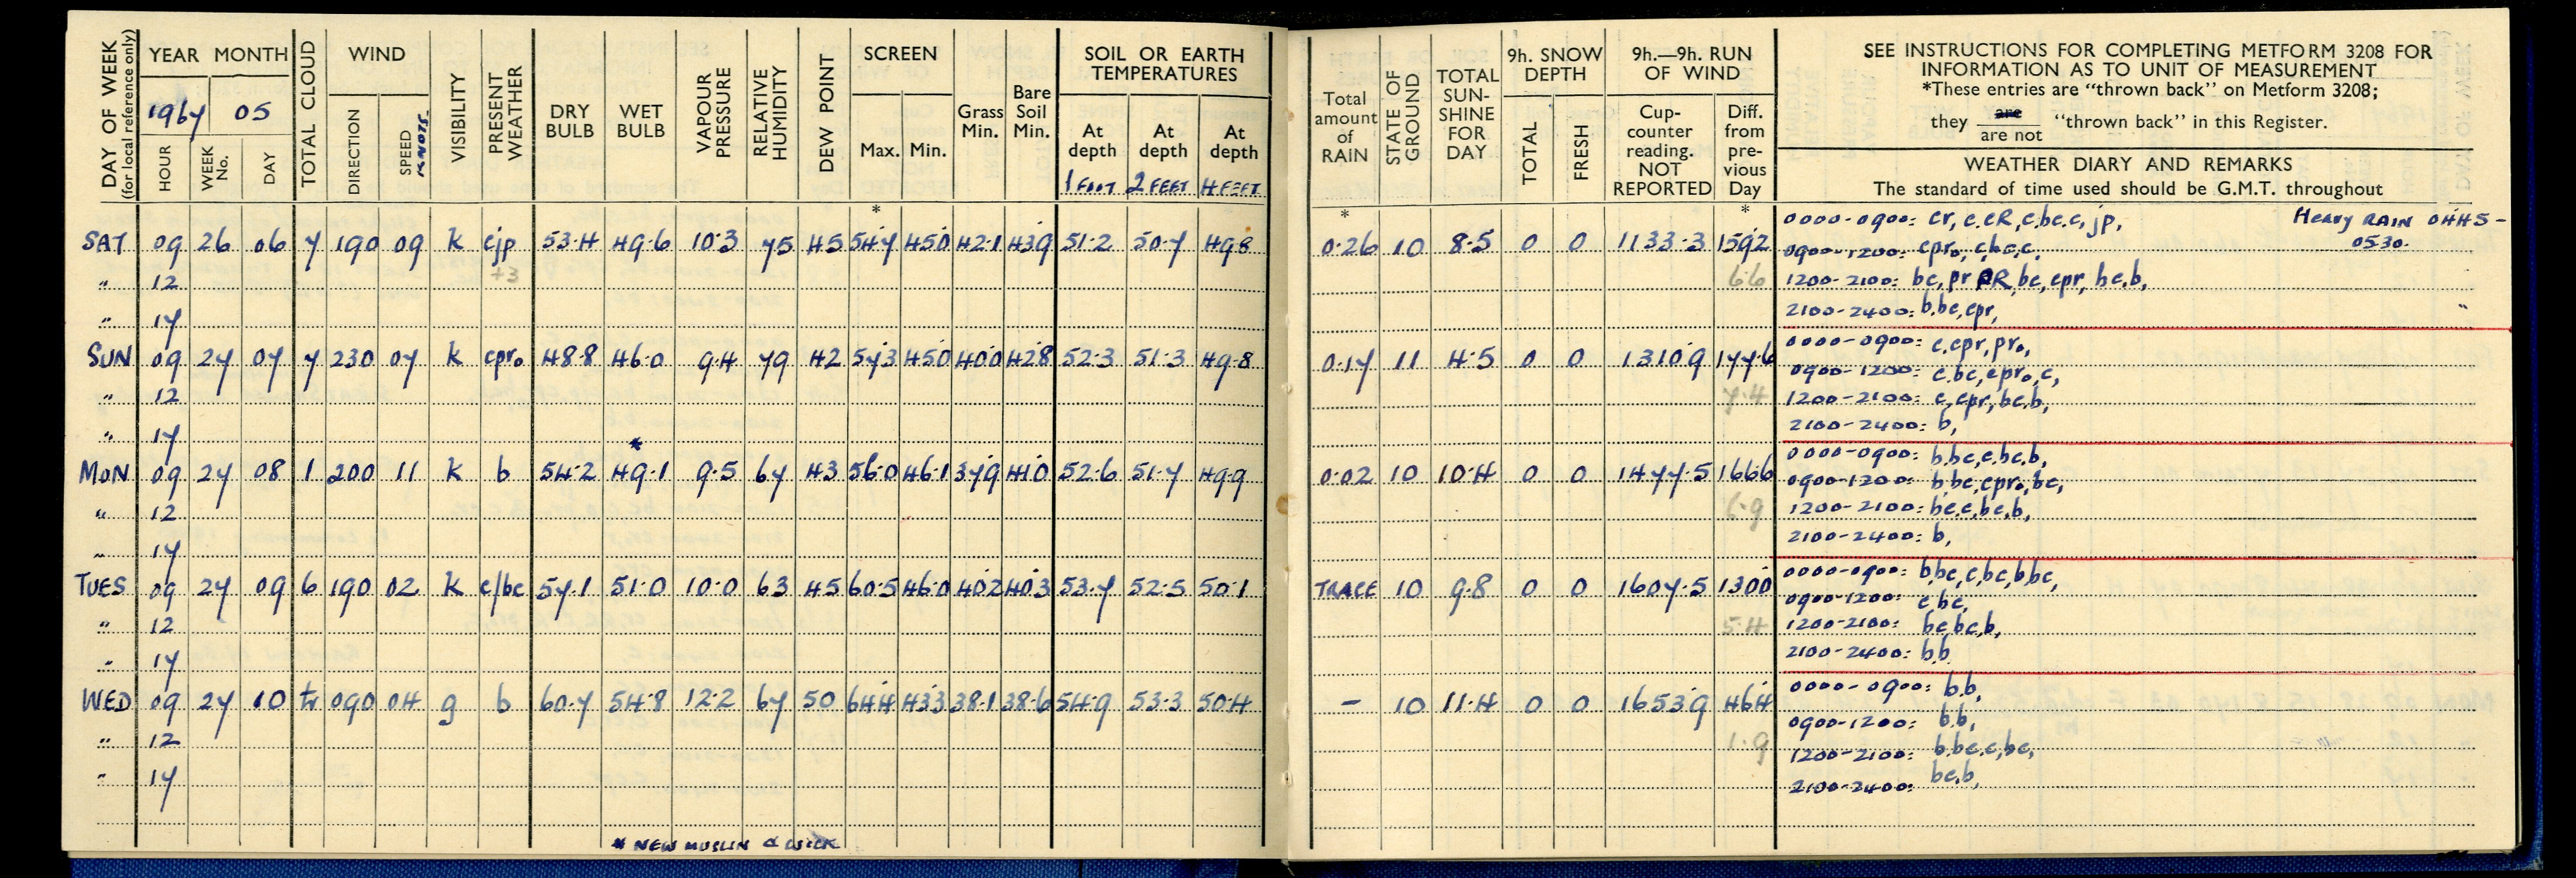 DAY OF WEEK
(for local reference only)
YEAR MONTH
1967 05
HOUR WEEK No. DAY
TOTAL CLOUD
WIND
DIRECTION SPEED KNOTS
VISIBILITY
PRESENT WEATHER
DRY BULB
WET BULB
VAPOUR PRESSURE
RELATIVE HUMIDITY
DEW POINT
SCREEN
Max. Min.
Grass Min.
Bare Soil Min.
SOIL OR EARTH
TEMPERATURES
At depth At depth At depth
1 FOOT 2 FEET 4 FEET
*
SAT 09 26 06 7 190 09 k cjp 53.4 49.6 10.3 75 45 54.7 45.0 42.1 43.9 51.2 50.7 49.8
+3
" 12
" 17
SUN 09 27 07 7 230 07 k cpr₀ 48.8 46.0 9.4 79 42 57.3 45.0 40.0 42.8 52.3 51.3 49.8
" 12
" 17
*
MON 09 27 08 1 200 11 k b 54.2 49.1 9.5 67 43 56.0 46.1 37.9 41.0 52.6 51.7 49.9
" 12
" 17
TUES 09 27 09 6 190 02 k c/bc 57.1 51.0 10.0 63 45 60.5 46.0 40.2 40.3 53.7 52.5 50.1
" 12
" 17
WED 09 27 10 tr 090 04 g b 60.7 54.8 12.2 67 50 64.4 43.3 38.1 38.6 54.9 53.3 50.4
" 12
" 17
* NEW MUSLIN & WICK
Total amount of RAIN
STATE OF GROUND
TOTAL SUN-SHINE FOR DAY
9h. SNOW DEPTH
TOTAL FRESH
9h.—9h. RUN OF WIND
Cup-counter reading. NOT REPORTED
Diff. from pre-vious Day
SEE INSTRUCTIONS FOR COMPLETING METFORM 3208 FOR
INFORMATION AS TO UNIT OF MEASUREMENT
*These entries are "thrown back" on Metform 3208;
they are / are not "thrown back" in this Register.
WEATHER DIARY AND REMARKS
The standard of time used should be G.M.T. throughout
* *
0.26 10 8.5 0 0 1133.3 159.2
6.6
0000-0900: cr, c.cR, c.bc.c, jp, Heavy RAIN 0445-0530.
0900-1200: cpr₀, c,bc,c,
1200-2100: bc, pr PR, bc, cpr, bc.b,
2100-2400: b.bc, cpr, "
0.17 11 4.5 0 0 1310.9 177.6
7.4
0000-0900: c.cpr, pr₀,
0900-1200: c.bc, cpr₀, c,
1200-2100: c, cpr, bc.b,
2100-2400: b,
0.02 10 10.4 0 0 1477.5 166.6
6.9
0000-0900: b.bc, c.bc.b,
0900-1200: b.bc, cpr₀, bc,
1200-2100: bc.c, bc, b,
2100-2400: b,
TRACE 10 9.8 0 0 1607.5 130.0
5.4
0000-0900: b,bc, c,bc, b,bc,
0900-1200: c.bc,
1200-2100: bc,bc.b,
2100-2400: b.b
— 10 11.4 0 0 1653.9 46.4
1.9
0000-0900: b.b,
0900-1200: b.b,
1200-2100: b.bc.c, bc,
2100-2400: bc.b,